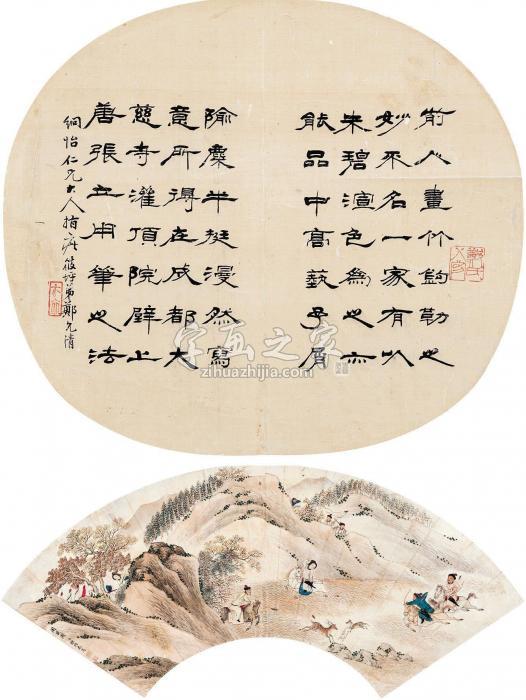 前人畫竹鉤勒之
妙不名一家有以
朱碧渲色為之亦
能品中高藝予屑
隃麋半挺漫然寫
意所得在成都大
慈寺灌頂院壁上
唐張立用筆之法
仁兄大人指疵筱坪弟鄭
字画之家
zihuazhijia.com